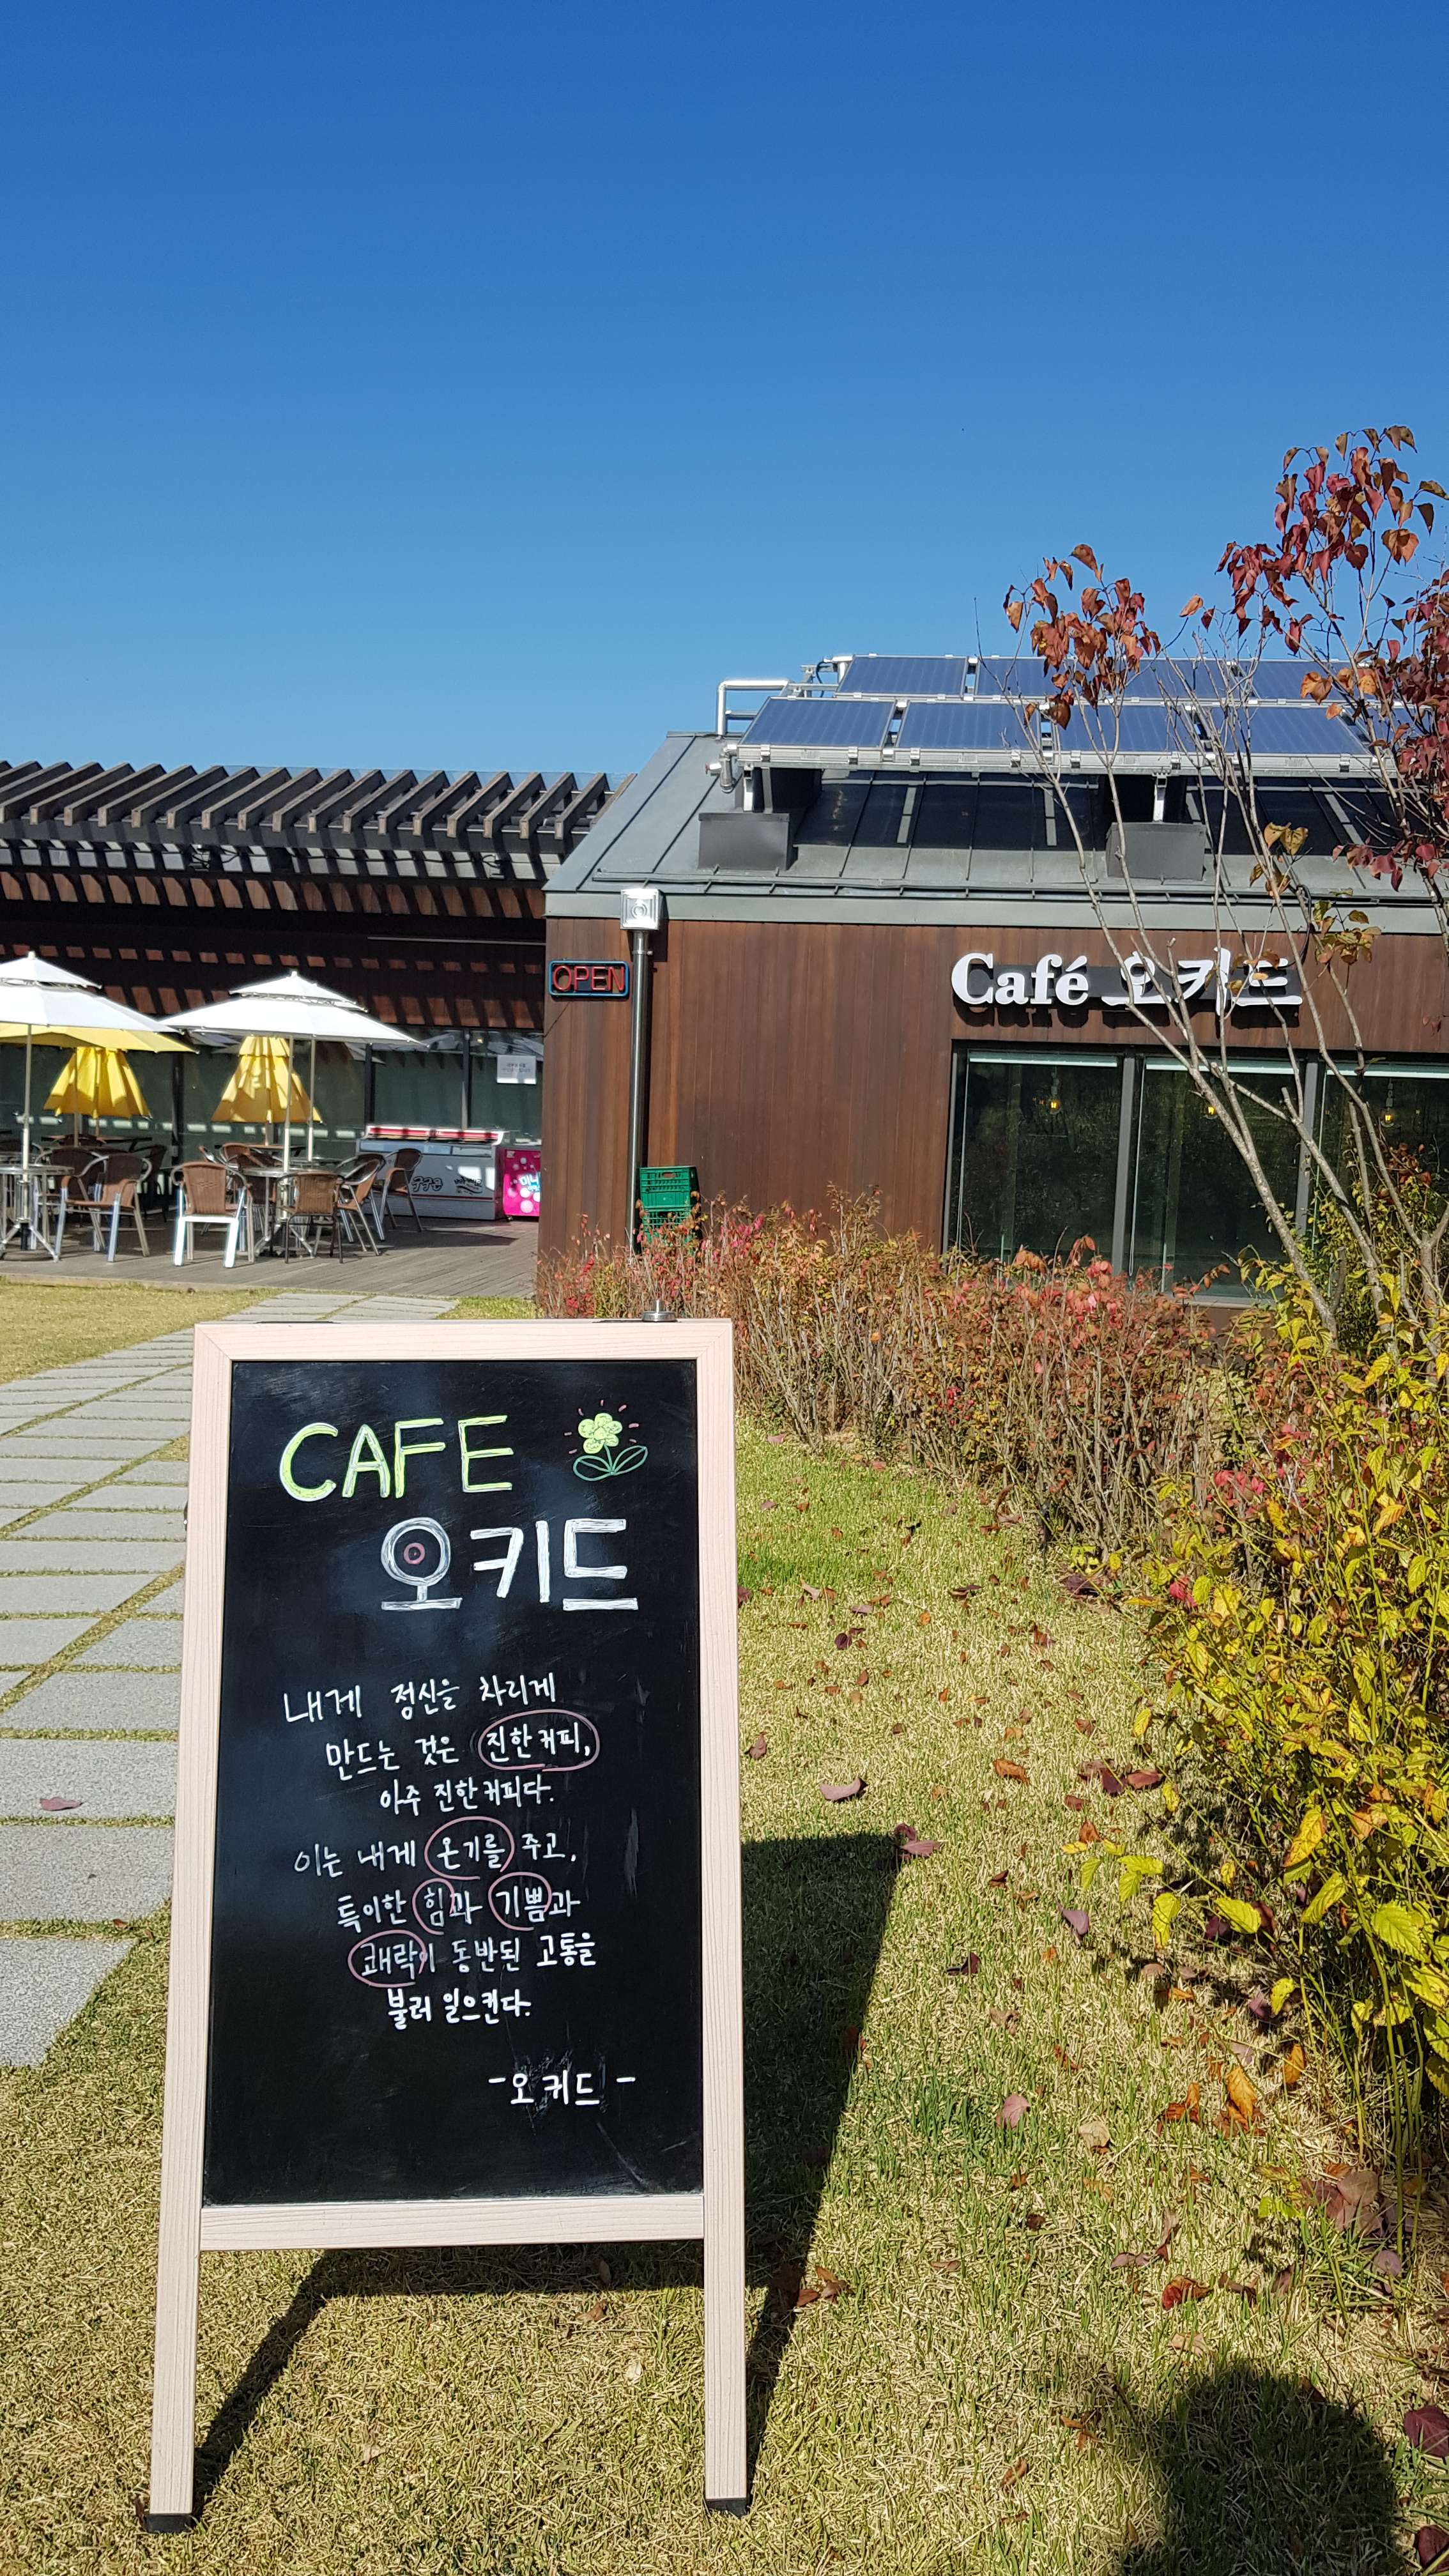 OPEN
Café 오키드
구구콘
CAFE
오키드
내게 정신을 차리게
만드는 것은 진한커피,
아주 진한커피다.
이는 내게 온기를 주고,
특이한 힘과 기쁨과
쾌락이 동반된 고통을
불러 일으킨다.
-오키드-